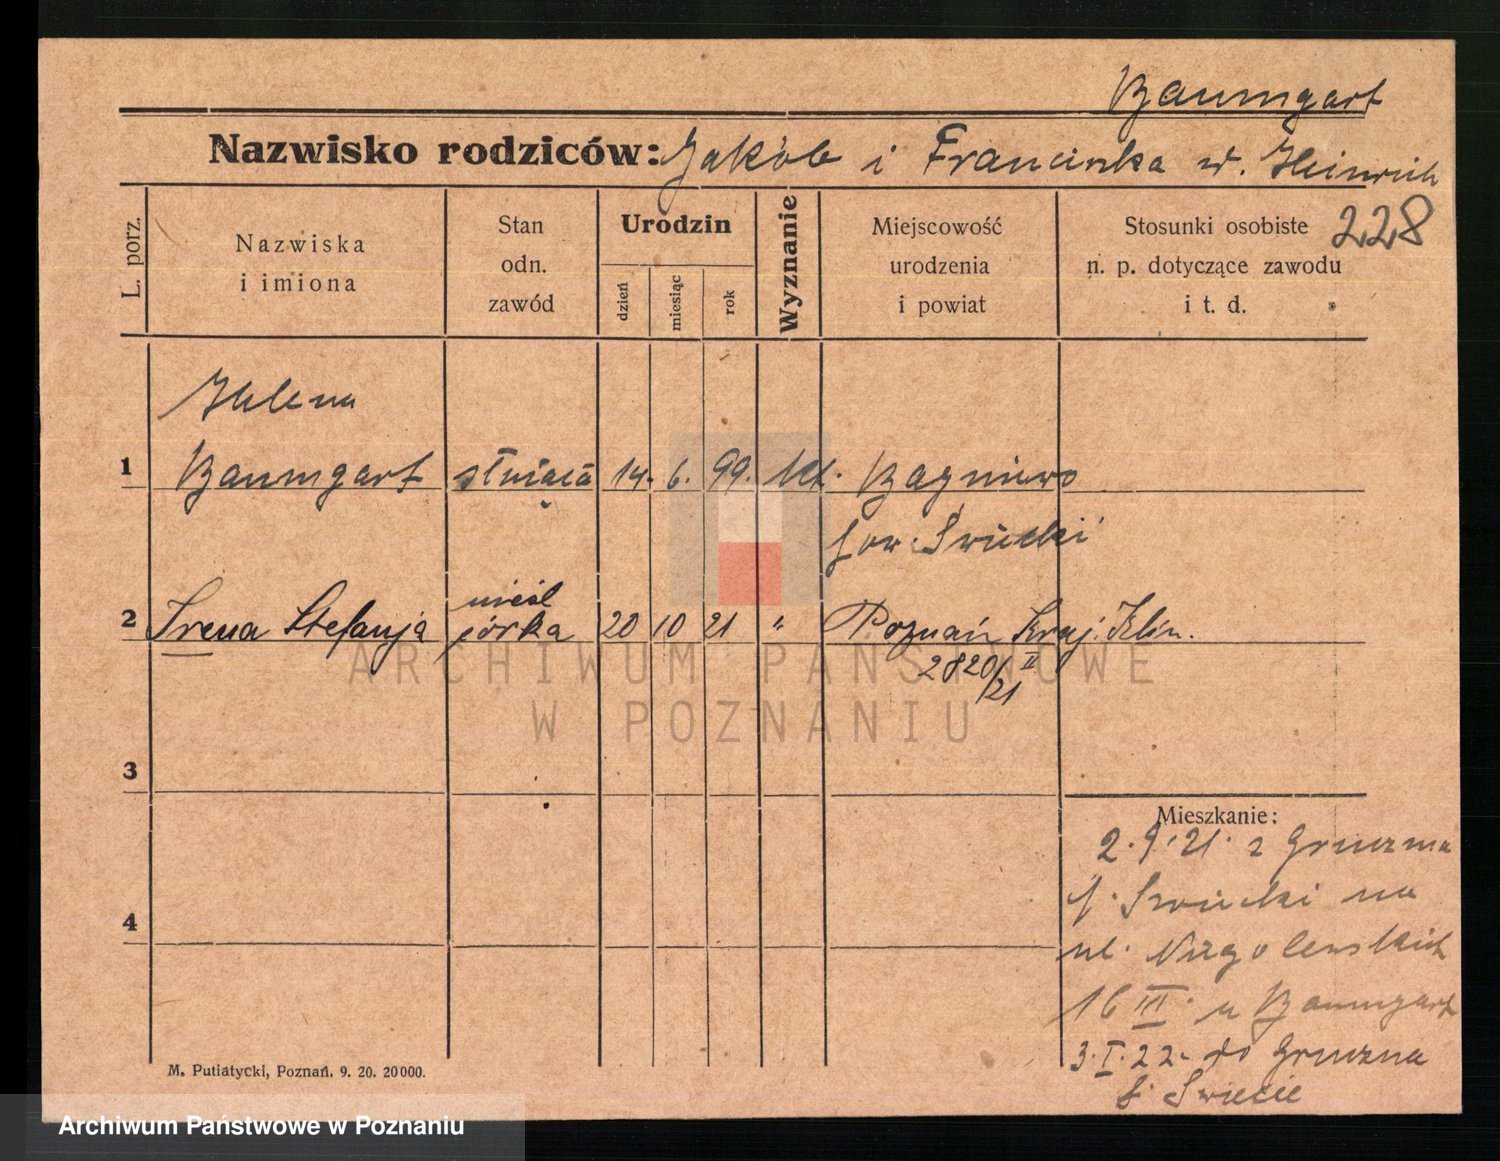 Baumgart
Nazwisko rodziców: Jakób i Franciszka w. Heinrich
228
L. porz.
Nazwiska
i imiona
Stan
odn.
zawód
Urodzin
dzień
miesiąc
rok
Wyznanie
Miejscowość
urodzenia
i powiat
Stosunki osobiste
n. p. dotyczące zawodu
i t. d.
Helena
1 Baumgart 14. 6. 99. kat. Bagniewo
pow. Świecki
nieśl
2 Irena Stefanja córka 20 10 21 " Poznań Kraj. Klin.
2820/21 II
3
4
Mieszkanie:
2.9.21. z Gruczna
p. Świecki na
ul.
16 III. u Baumgart
3.I.22. do Gruczna
p. Świecie
M. Putiatycki, Poznań. 9. 20. 20000.
ARCHIWUM PAŃSTWOWE
W POZNANIU
Archiwum Państwowe w Poznaniu